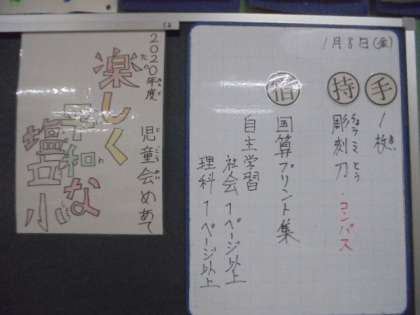 2020年度
児童会めあて
楽しく
平和な
塩五小
1月8日(金)
手 1枚
持 彫刻刀・コンパス
ちょうこくとう
宿 国算プリント集
自主学習
社会1ページ以上
理科1ページ以上